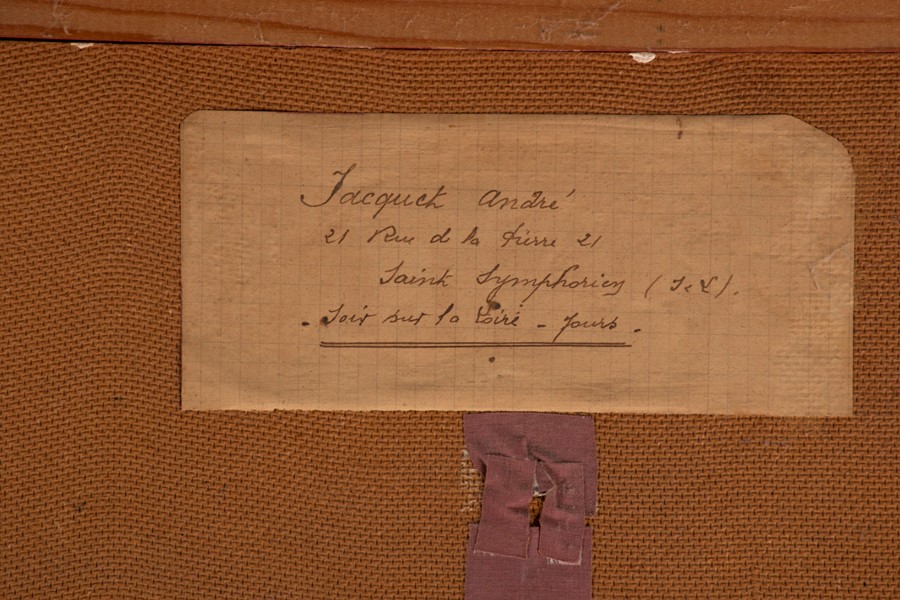 Jacquet André
21 Rue de la Pierre 21
Saint Symphorien (I.&L).
. Soir sur la Loire - Tours .